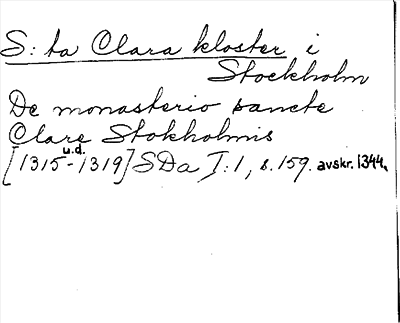 S:ta Clara kloster i
Stockholm
De monasterio sancte
Clare Stokholmis
[1315 u.d.-1319] SDa I:1, s.159. avskr. 1344.